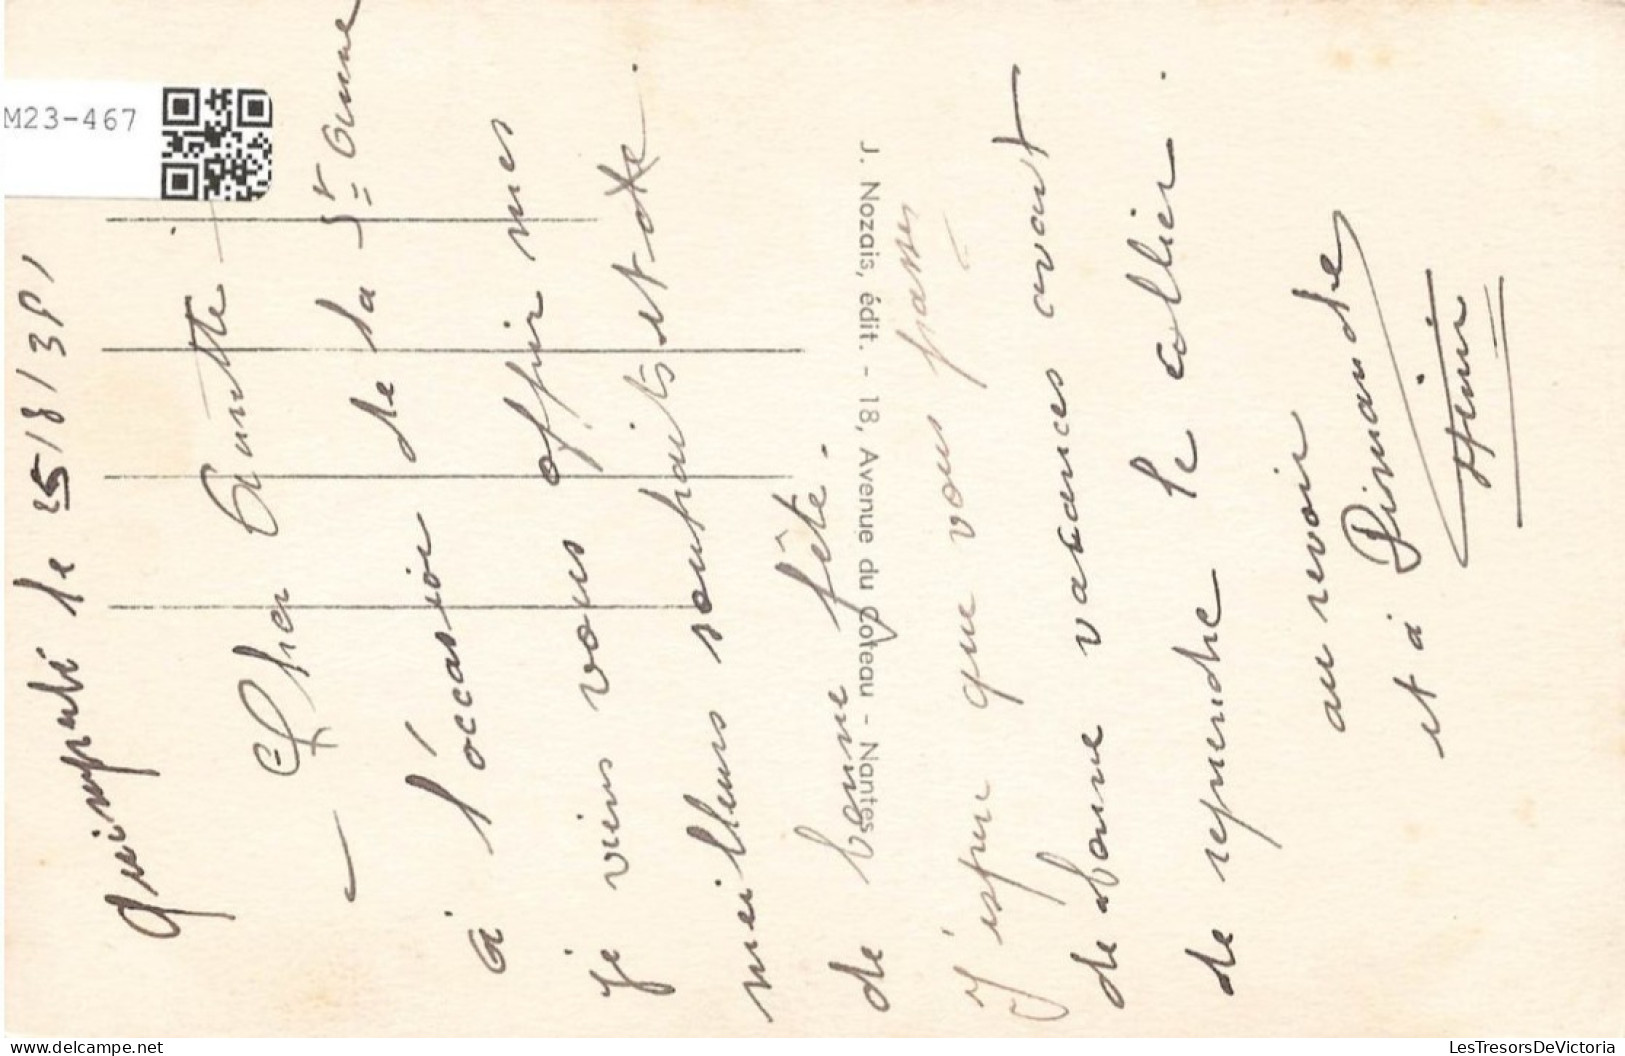 M23-467
Quimperlé le 25/8/39
Cher Tante
à l'occasion de la St
je viens vous offrir mes
meilleurs souhaits et
de bonne fête.
J'espère que vous
de bonne vacances avant
de reprendre le collier.
au revoir
et à Dimanche
J. Nozais, édit. - 18, Avenue du Coteau - Nantes
delcampe.net
LesTresorsDeVictoria